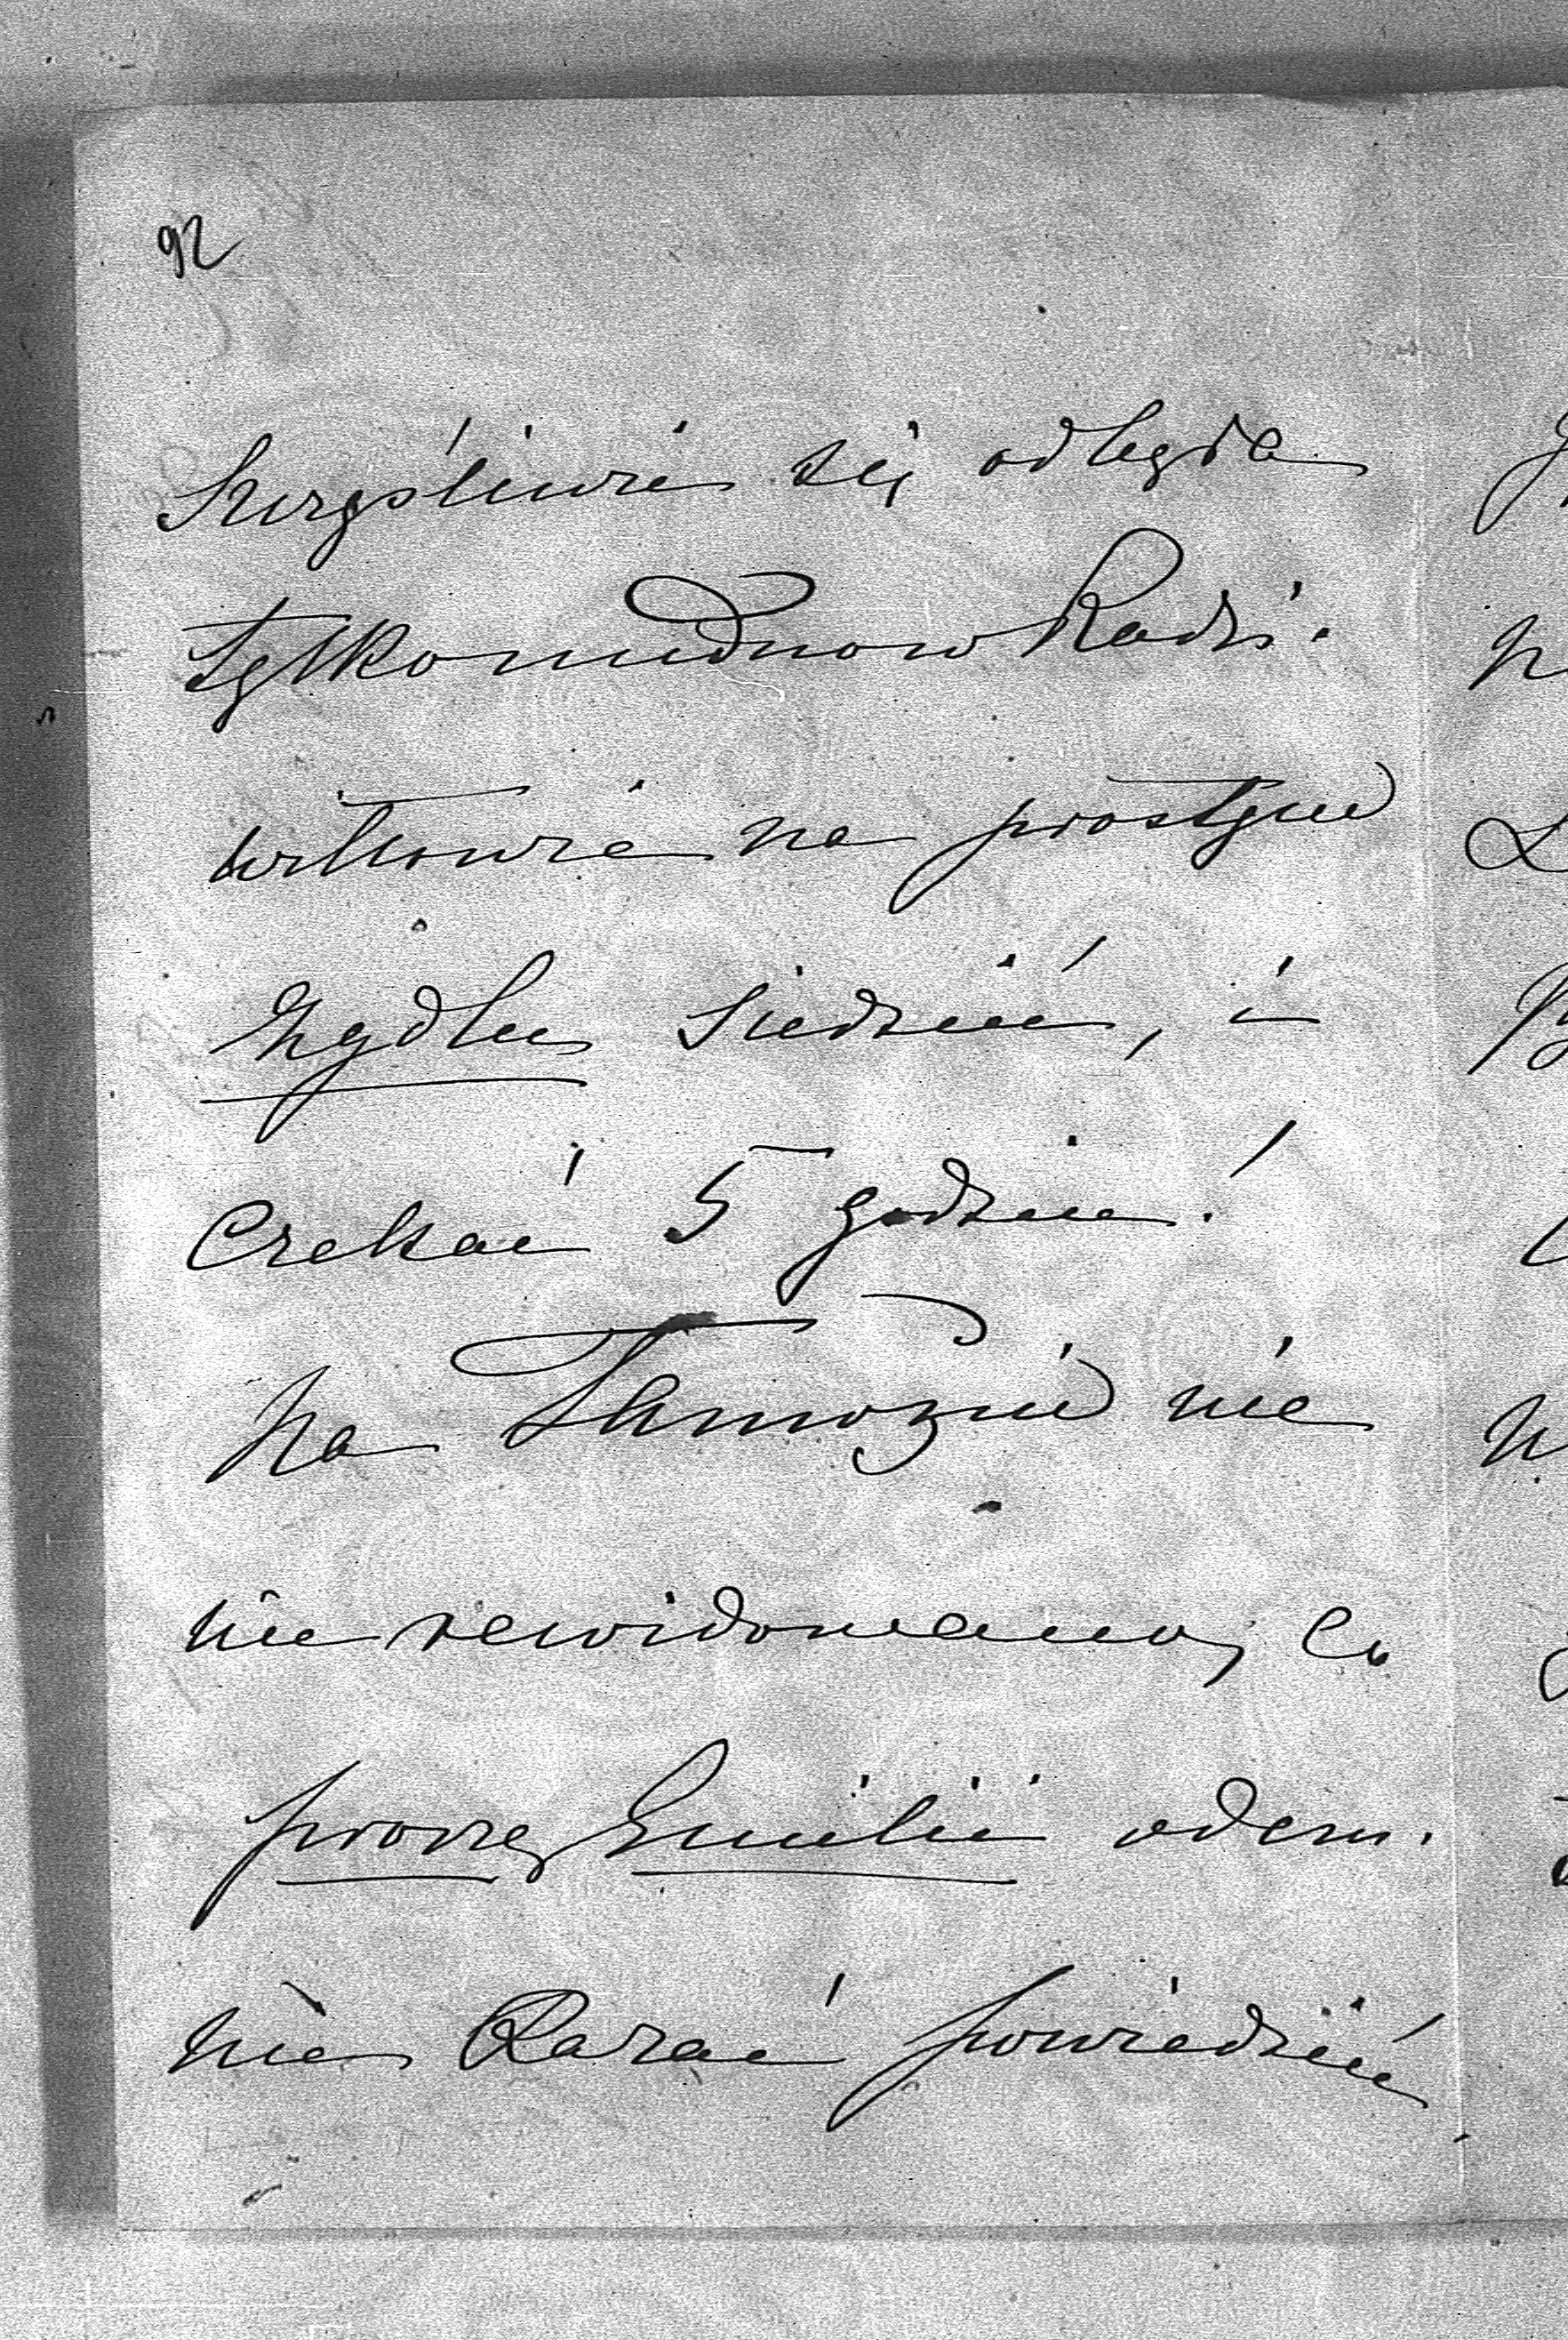 92
szczęśliwie się odbyła
tylko nudno w Radzi-
wiłłowie na prostym
zydlu siedzieć, i
czekać 5 godzin!
na Tamożnie nie
nie rewidowano, co
proszę Emilii odem-
nie kazać powiedzieć